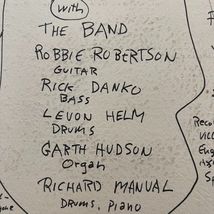 with
THE BAND
ROBBIE ROBERTSON
GUITAR
RICK DANKO
BASS
LEVON HELM
DRUMS
GARTH HUDSON
Organ
RICHARD MANUAL
DRUMS, PIANO